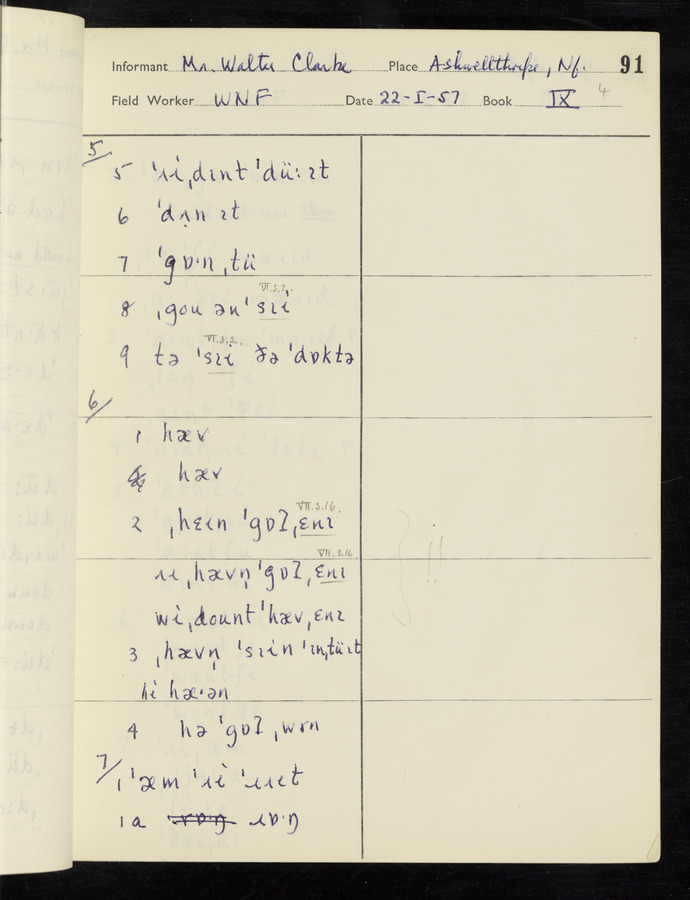 Informant Mr. Walter Clarke Place Ashwellthorpe, Nf. 91
Field Worker WNF Date 22-I-57 Book IX 4
5/
5 ˈɹi̇ˌdɪnt ˈdüːɪt
6 ˈdʌn ɪt
7 ˈgɒˑn ˌtü
VI.3.2.
8 ˌgou ən ˈsɪi̇
VI.3.2.
9 tə ˈsɪi̇ ðə ˈdɒktə
6/
1 hæv
hæv
VII.3.16.
2 ˌhɛɪn ˈgɒʔˌɛnɪ
VII.3.16.
ˌhævn̩ ˈgɒʔˌɛnɪ
wi̇ˌdount ˈhævˌɛnɪ
3 ˌhævn̩ ˈsɪi̇n ˈɪnˌtüɪt
hi̇ hæˑən
4 hə ˈgɒʔ ˌwɪn
7/
1 ˈæm ˈɹi̇ ˈɹɪɪt
1a ɹɒˑŋ
!!